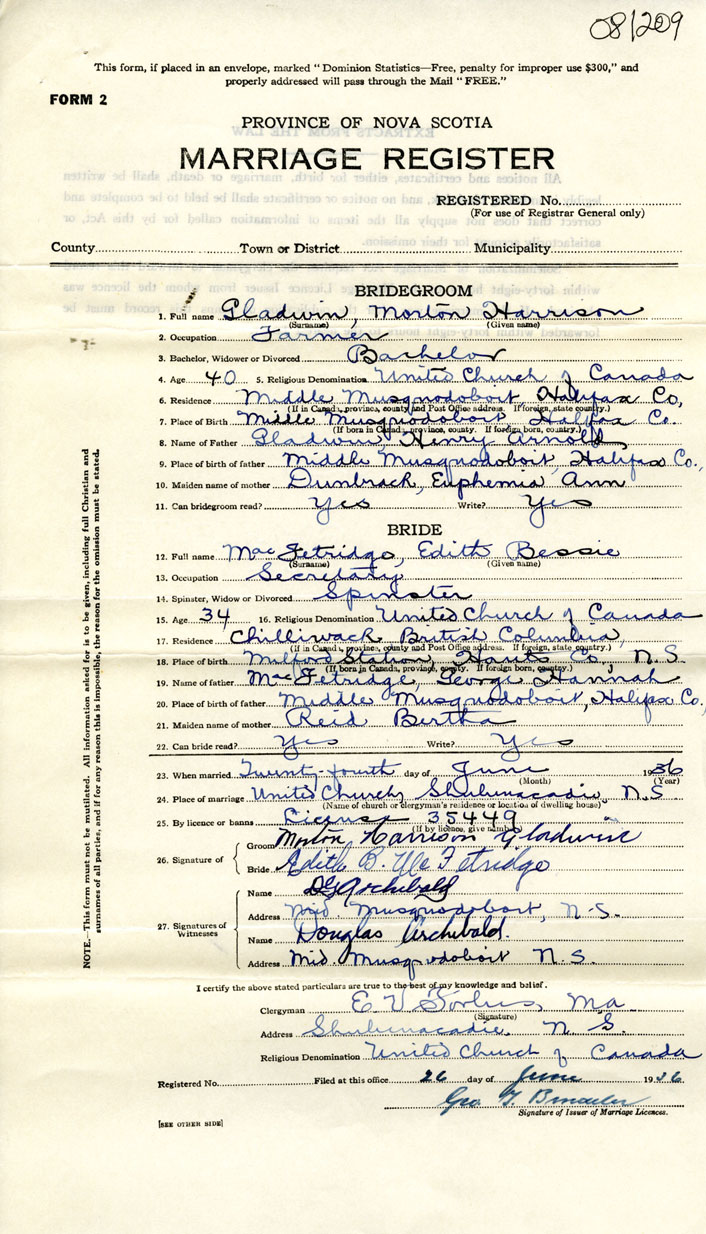 08/209
This form, if placed in an envelope, marked "Dominion Statistics—Free, penalty for improper use $300," and
properly addressed will pass through the Mail "FREE."
FORM 2
PROVINCE OF NOVA SCOTIA
MARRIAGE REGISTER
REGISTERED No.
(For use of Registrar General only)
County Town or District Municipality
BRIDEGROOM
1. Full name Gladwin, Morton Harrison
(Surname) (Given name)
2. Occupation Farmer
3. Bachelor, Widower or Divorced Bachelor
4. Age 40 5. Religious Denomination United Church of Canada
6. Residence Middle Musquodoboit, Halifax Co,
(If in Canada, province, county and Post Office address. If foreign, state country.)
7. Place of Birth Middle Musquodoboit Halifax Co.
(If born in Canada, province, county. If foreign born, country.)
8. Name of Father Gladwin, Henry Arnold
9. Place of birth of father Middle Musquodoboit, Halifax Co.,
10. Maiden name of mother Dunbrack, Euphemia Ann
11. Can bridegroom read? Yes Write? Yes
BRIDE
12. Full name MacFetridge, Edith Bessie
(Surname) (Given name)
13. Occupation Secretary
14. Spinster, Widow or Divorced Spinster
15. Age 34 16. Religious Denomination United Church of Canada
17. Residence Chilliwack British Columbia,
(If in Canada, province, county and Post Office address. If foreign, state country.)
18. Place of birth Milford Station, Hants Co, N.S.
(If born in Canada, province, county. If foreign born, country.)
19. Name of father MacFetridge, George Hannah
20. Place of birth of father Middle Musquodoboit, Halifax Co.,
21. Maiden name of mother Reid Bertha
22. Can bride read? Yes Write? Yes
23. When married Twenty-fourth day of June 1936
(Month) (Year)
24. Place of marriage United Church, Shubenacadie, N.S
(Name of church or clergyman's residence or location of dwelling house)
25. By licence or banns License 35449
(If by licence, give number)
26. Signature of
Groom Morton Harrison Gladwin
Bride Edith B. McFetridge
27. Signatures of Witnesses
Name DG Archibald
Address Mid. Musquodoboit, N.S.
Name Douglas Archibald.
Address Mid. Musquodoboit N.S.
I certify the above stated particulars are true to the best of my knowledge and belief.
Clergyman E. V. Forbes, Ma
(Signature)
Address Shubenacadie, N.S.
Religious Denomination United Church of Canada
Registered No. Filed at this office 26 day of June 1936
Geo
Signature of Issuer of Marriage Licences.
[SEE OTHER SIDE]
NOTE.—This form must not be mutilated. All information asked for is to be given, including full Christian and
surnames of all parties, and if for any reason this is impossible, the reason for the omission must be stated.